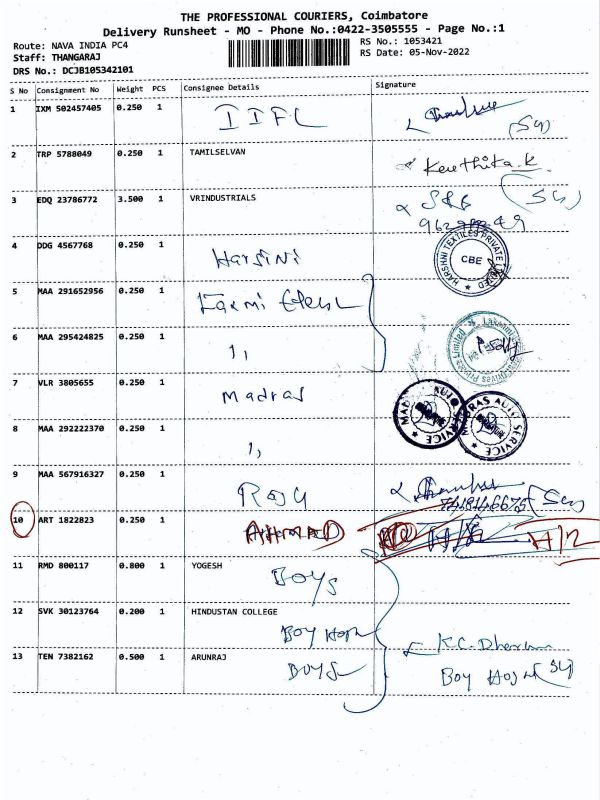 THE PROFESSIONAL COURIERS, Coimbatore
Delivery Runsheet - MO - Phone No.:0422-3505555 - Page No.:1
Route: NAVA INDIA PC4
RS No.: 1053421
Staff: THANGARAJ
RS Date: 05-Nov-2022
DRS No.: DCJB105342101
S No Consignment No Weight PCS Consignee Details Signature
1 IXM 502457405 0.250 1 IIFL
2 TRP 5788049 0.250 1 TAMILSELVAN Keerthika.K
3 EDQ 23786772 3.500 1 VRINDUSTRIALS
4 DDG 4567768 0.250 1 Harsini
HARSHNI TEXTILES PRIVATE LIMITED
CBE
5 MAA 291652956 0.250 1 Laxmi
6 MAA 295424825 0.250 1 11
7 VLR 3805655 0.250 1 Madras
MADRAS AUTO SERVICE
8 MAA 292222370 0.250 1 11
9 MAA 567916327 0.250 1 Roy
10 ART 1822823 0.250 1 AHMAD
11 RMD 800117 0.800 1 YOGESH
Boys
12 SVK 30123764 0.200 1 HINDUSTAN COLLEGE
Boy
13 TEN 7382162 0.500 1 ARUNRAJ K.C.
Boys Boy